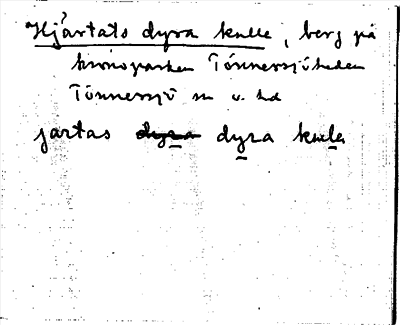 Hjärtats dyra kulle, berg på
kronoparken Tönnersjöheden
Tönnersjö sn o. hd
jartas dyra dyra kule